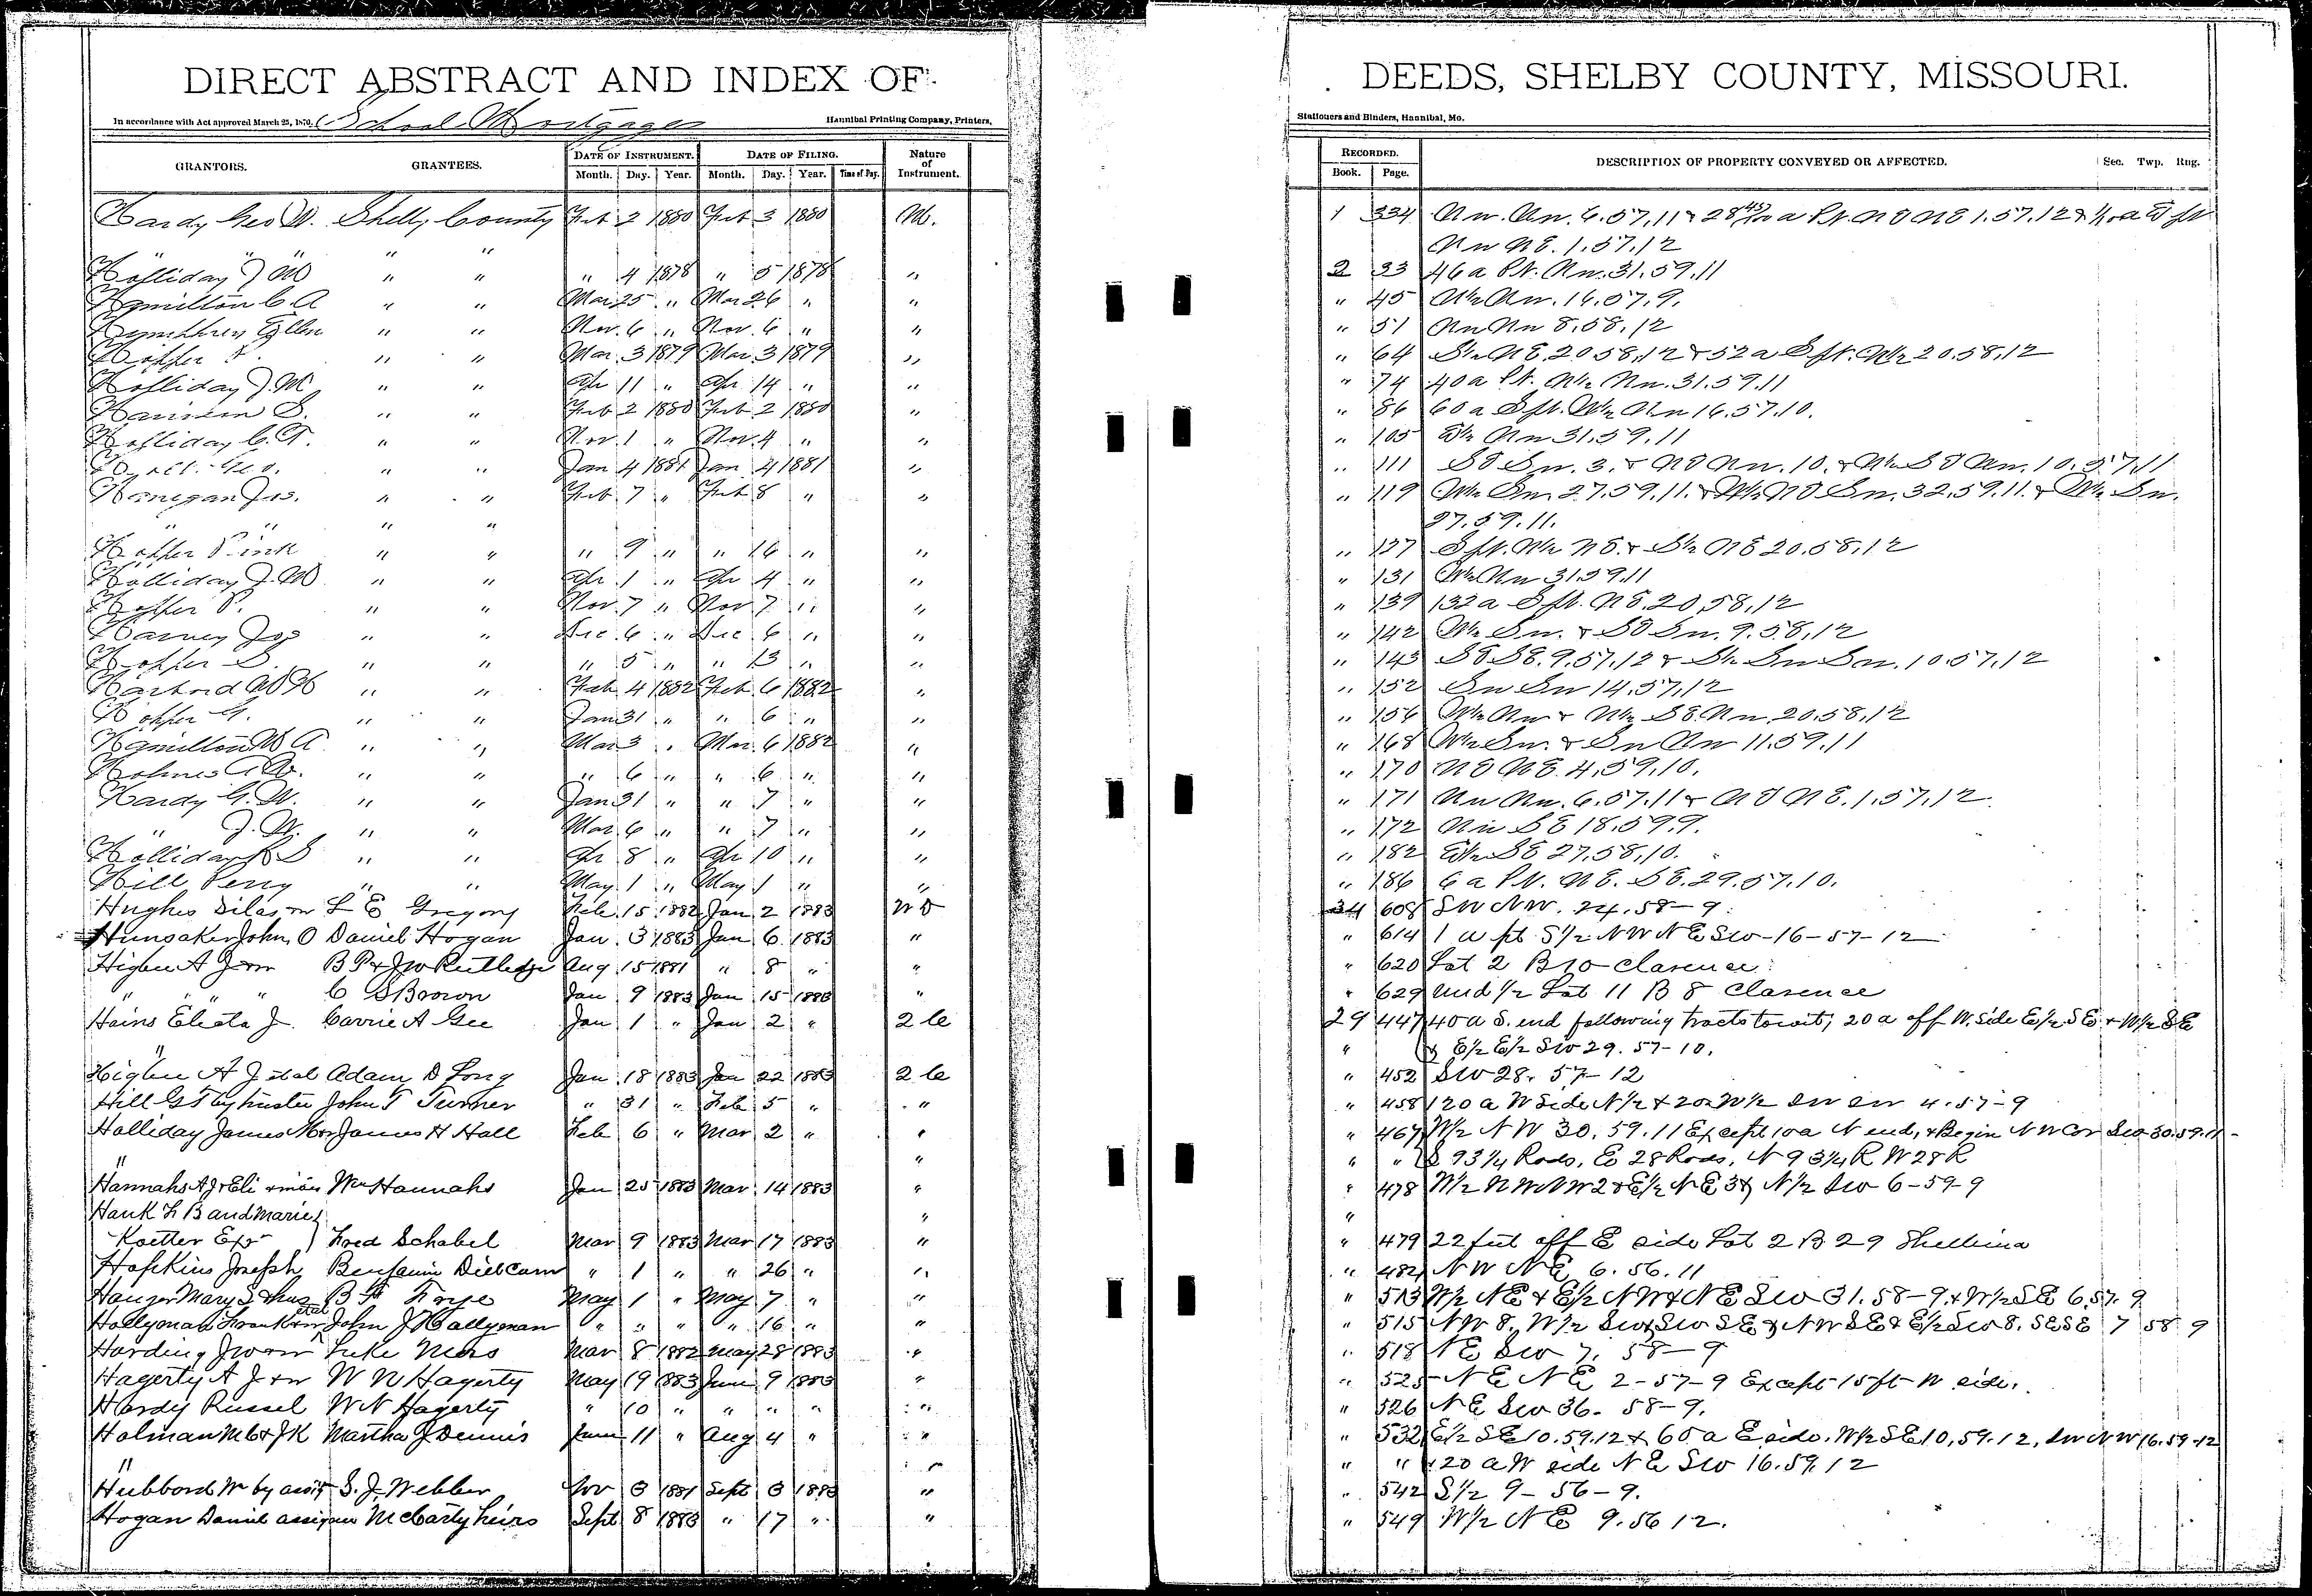 DIRECT ABSTRACT AND INDEX OF
In accordance with Act approved March 25, 1870. School Mortgages Hannibal Printing Company, Printers,
GRANTORS. GRANTEES. DATE OF INSTRUMENT. DATE OF FILING. Nature of Instrument.
Month. Day. Year. Month. Day. Year. Time of Day.
Hardy Geo W. Shelby County Feb 2 1880 Feb 3 1880 M.
" " " "
Holliday J M " " " 4 1878 " 5 1878 "
Hamilton C A " " Mar 25 " Mar 26 " "
Humphrey Ellen " " Nov. 6 " Nov. 6 " "
Hopper P. " " Mar. 3 1879 Mar. 3 1879 "
Holliday J. M. " " Apr 11 " Apr 14 " "
Harrison S. " " Feb 2 1880 Feb 2 1880 "
Holliday C. T. " " Nov. 1 " Nov. 4 " "
Geo. " " Jan 4 1881 Jan 4 1881 "
Hanegan Jno. " " Feb 7 " Feb 8 " "
" " " "
Hopper Pink " " " 9 " " 16 " "
Holliday J. M. " " Apr 1 " Apr 4 " "
Hopper P. " " Nov. 7 " Nov 7 " "
Harvey Jos " " Dec. 6 " Dec 6 " "
Hopper S. " " " 5 " " 13 " "
" " Feb 4 1882 Feb. 6 1882 "
Hopper G. " " Jan 31 " " 6 " "
Hamilton W A " " Mar 3 " Mar. 6 1882 "
Holmes A W. " " " 6 " " 6 " "
Hardy G. W. " " Jan 31 " " 7 " "
" J. W. " " Mar. 6 " " 7 " "
Holliday R S " " Apr 8 " Apr 10 " "
Hill Perry " " May 1 " May 1 " "
Hughes Silas + w L E Gregory Feb. 15 1882 Jan 2 1883 W D
Hunsaker John O Daniel Hogan Jan. 3 1883 Jan 6 1883 "
Higbee A J + w B P + J W Rutledge Aug 15 1881 " 8 " "
" " " " C S Brown Jan 9 1883 Jan 15 1883 "
Hains Electa J. Carrie A Gee Jan 1 " Jan 2 " 2 C
"
Higbee A J et al Adam D Long Jan 18 1883 Jan 22 1883 2 C
Hill G T by trustee John T Turner " 31 " Feb 5 " "
Holliday James M + w James H Hall Feb 6 " Mar 2 " "
" "
Hannahs A J + Eli + Wm Hannahs Jan 25 1883 Mar 14 1883 "
Hauk L B and Marie "
Koetter Exr Fred Schabel Mar 9 1883 Mar 17 1883 "
Hopkins Joseph Benjamin " 1 " " 26 " "
Hanger Mary S + hus B F Frye May 1 " May 7 " "
Hollyman Frank + w et al John J Hollyman " " " " 16 " "
Harding J W + w Luke Mar 8 1882 May 28 1883 "
Hagerty A J + w W N Hagerty May 19 1883 June 9 1883 "
Hardy Russel W N Hagerty " 10 " " " " "
Holman M C + J K Martha J Dennis June 11 " Aug 4 " "
" "
Hubbord Wm by S. J. Webber Nov 3 1881 Sept 3 1883 "
Hogan Daniel assignee McCarty heirs Sept 8 1883 " 17 " "
DEEDS, SHELBY COUNTY, MISSOURI.
Stationers and Binders, Hannibal, Mo.
RECORDED. DESCRIPTION OF PROPERTY CONVEYED OR AFFECTED. Sec. Twp. Rng.
Book. Page.
1 334 Nw. Nw. 6.57.11 + 28 45/100 a Pt. N E N E 1.57.12 + E pt
Nw N E. 1.57.12
2 33 46 a Pt. Nw. 31.59.11
" 45 Nw. 16.57.9.
" 51 Nw Nw 8.58.12
" 64 S½ N E. 20 58.12 + 52 a S pt. N½ 20.58.12
" 74 40 a Pt. W½ Nw. 31.59.11
" 86 60 a S pt. W½ Nw 16.57.10.
" 105 E½ Nw 31.59.11
" 111 S E Sw. 3. + N E Nw. 10. + N½ S E Nw. 10.57.11
" 119 W½ Sw. 27.59.11. + W½ N E Sw. 32.59.11. + W½ Sw.
27.59.11.
" 127 S pt. N½ N E. + S½ N E 20.58.12
" 131 W½ Nw 31.59.11
" 139 132 a S pt. N E. 20.58.12
" 142 W½ Sw. + S E Sw. 9.58.12
" 143 S E S E. 9.57.12 + S½ Sw Sw. 10.57.12
" 152 Sw Sw 14.57.12
" 156 W½ Nw + N½ S E. Nw. 20.58.12
" 168 W½ Sw. + Sw Nw 11.59.11
" 170 N E N E. 4.59.10.
" 171 Nw Nw. 6.57.11 + N E N E. 1.57.12
" 172 Nw S E 18.59.9.
" 182 E½ S E 27.58.10.
" 186 6 a Pt. N E. S E. 29.57.10.
34 608 SW NW. 24.58-9.
" 614 1 a pt S½ NW NE SW-16-57-12
" 620 Lot 2 B 10 Clarence
" 629 Und ½ Lot 11 B 8 Clarence
29 447 40 a S. end following tracts towit; 20 a off W. Side E½ SE + W½ SE
" + E½ E½ SW 29. 57-10.
" 452 SW 28. 57-12
" 458 120 a W Side N½ + 20 a W½ SW SW 4.57-9
" 467 W½ NW 30.59.11 Except 10 a N end, + Begin NW Cor Sec 30.59.11-
" " S 93¼ Rods, E 28 Rods, N 93¼ R W 28 R
" 478 W½ NW NW 2 + E½ NE 3 + N½ SW 6-59-9
"
" 479 22 feet off E side Lot 2 B 29 Shelbina
" 482 NW NE 6.56.11
" 513 W½ NE + E½ NW + NE SW 31.58-9. + W½ SE 6.57.9
" 515 NW 8. W½ SW + SW SE + NW SE + E½ SW 8. SE SE 7 58 9
" 518 NE SW 7. 58-9
" 525 NE NE 2-57-9 Except 15 ft W side.
" 526 NE SW 36. 58-9.
" 532 E½ SE 10.59.12 + 60 a E side. W½ SE 10.59.12, SW NW 16.59-12
" " + 20 a W side NE SW 16.59.12
" 542 S½ 9-56-9.
" 549 W½ NE 9.56 12.